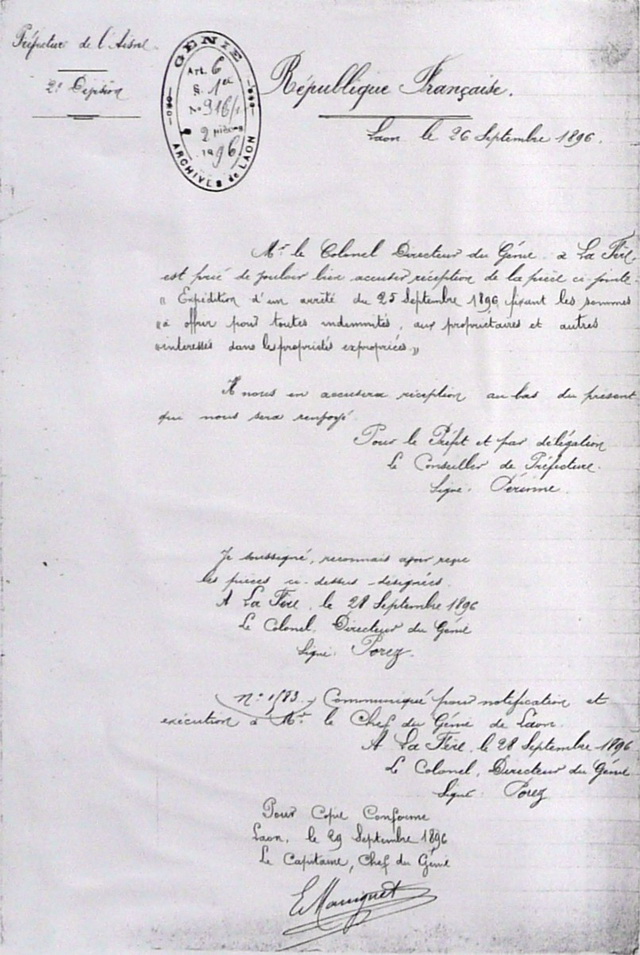 Préfecture de l'Aisne
2e Division
GÉNIE
Art. 6
S. 1ere
No 916/1
2 pièces
1896
ARCHIVES de LAON
République Française.
Laon, le 26 Septembre 1896.
Mr le Colonel Directeur du Génie à La Fère
est prié de vouloir bien accuser réception de la pièce ci-jointe
"Expédition d'un arrêté du 25 Septembre 1896, fixant les sommes
"à offrir pour toutes indemnités, aux propriétaires et autres
"intéressés dans les propriétés expropriées."
Il nous en accusera réception au bas du présent
qui nous sera renvoyé.
Pour le Préfet et par délégation
Le Conseiller de Préfecture.
Signé:
Je soussigné, reconnais avoir reçu
les pièces ci-dessus désignées.
A La Fère, le 28 Septembre 1896
Le Colonel, Directeur du Génie
Signé: Porez
No 1583. Communiqué pour notification et
exécution à Mr le Chef du Génie de Laon.
A La Fère, le 28 Septembre 1896
Le Colonel, Directeur du Génie
Signé: Porez
Pour Copie Conforme
Laon, le 29 Septembre 1896
Le Capitaine, Chef du Génie